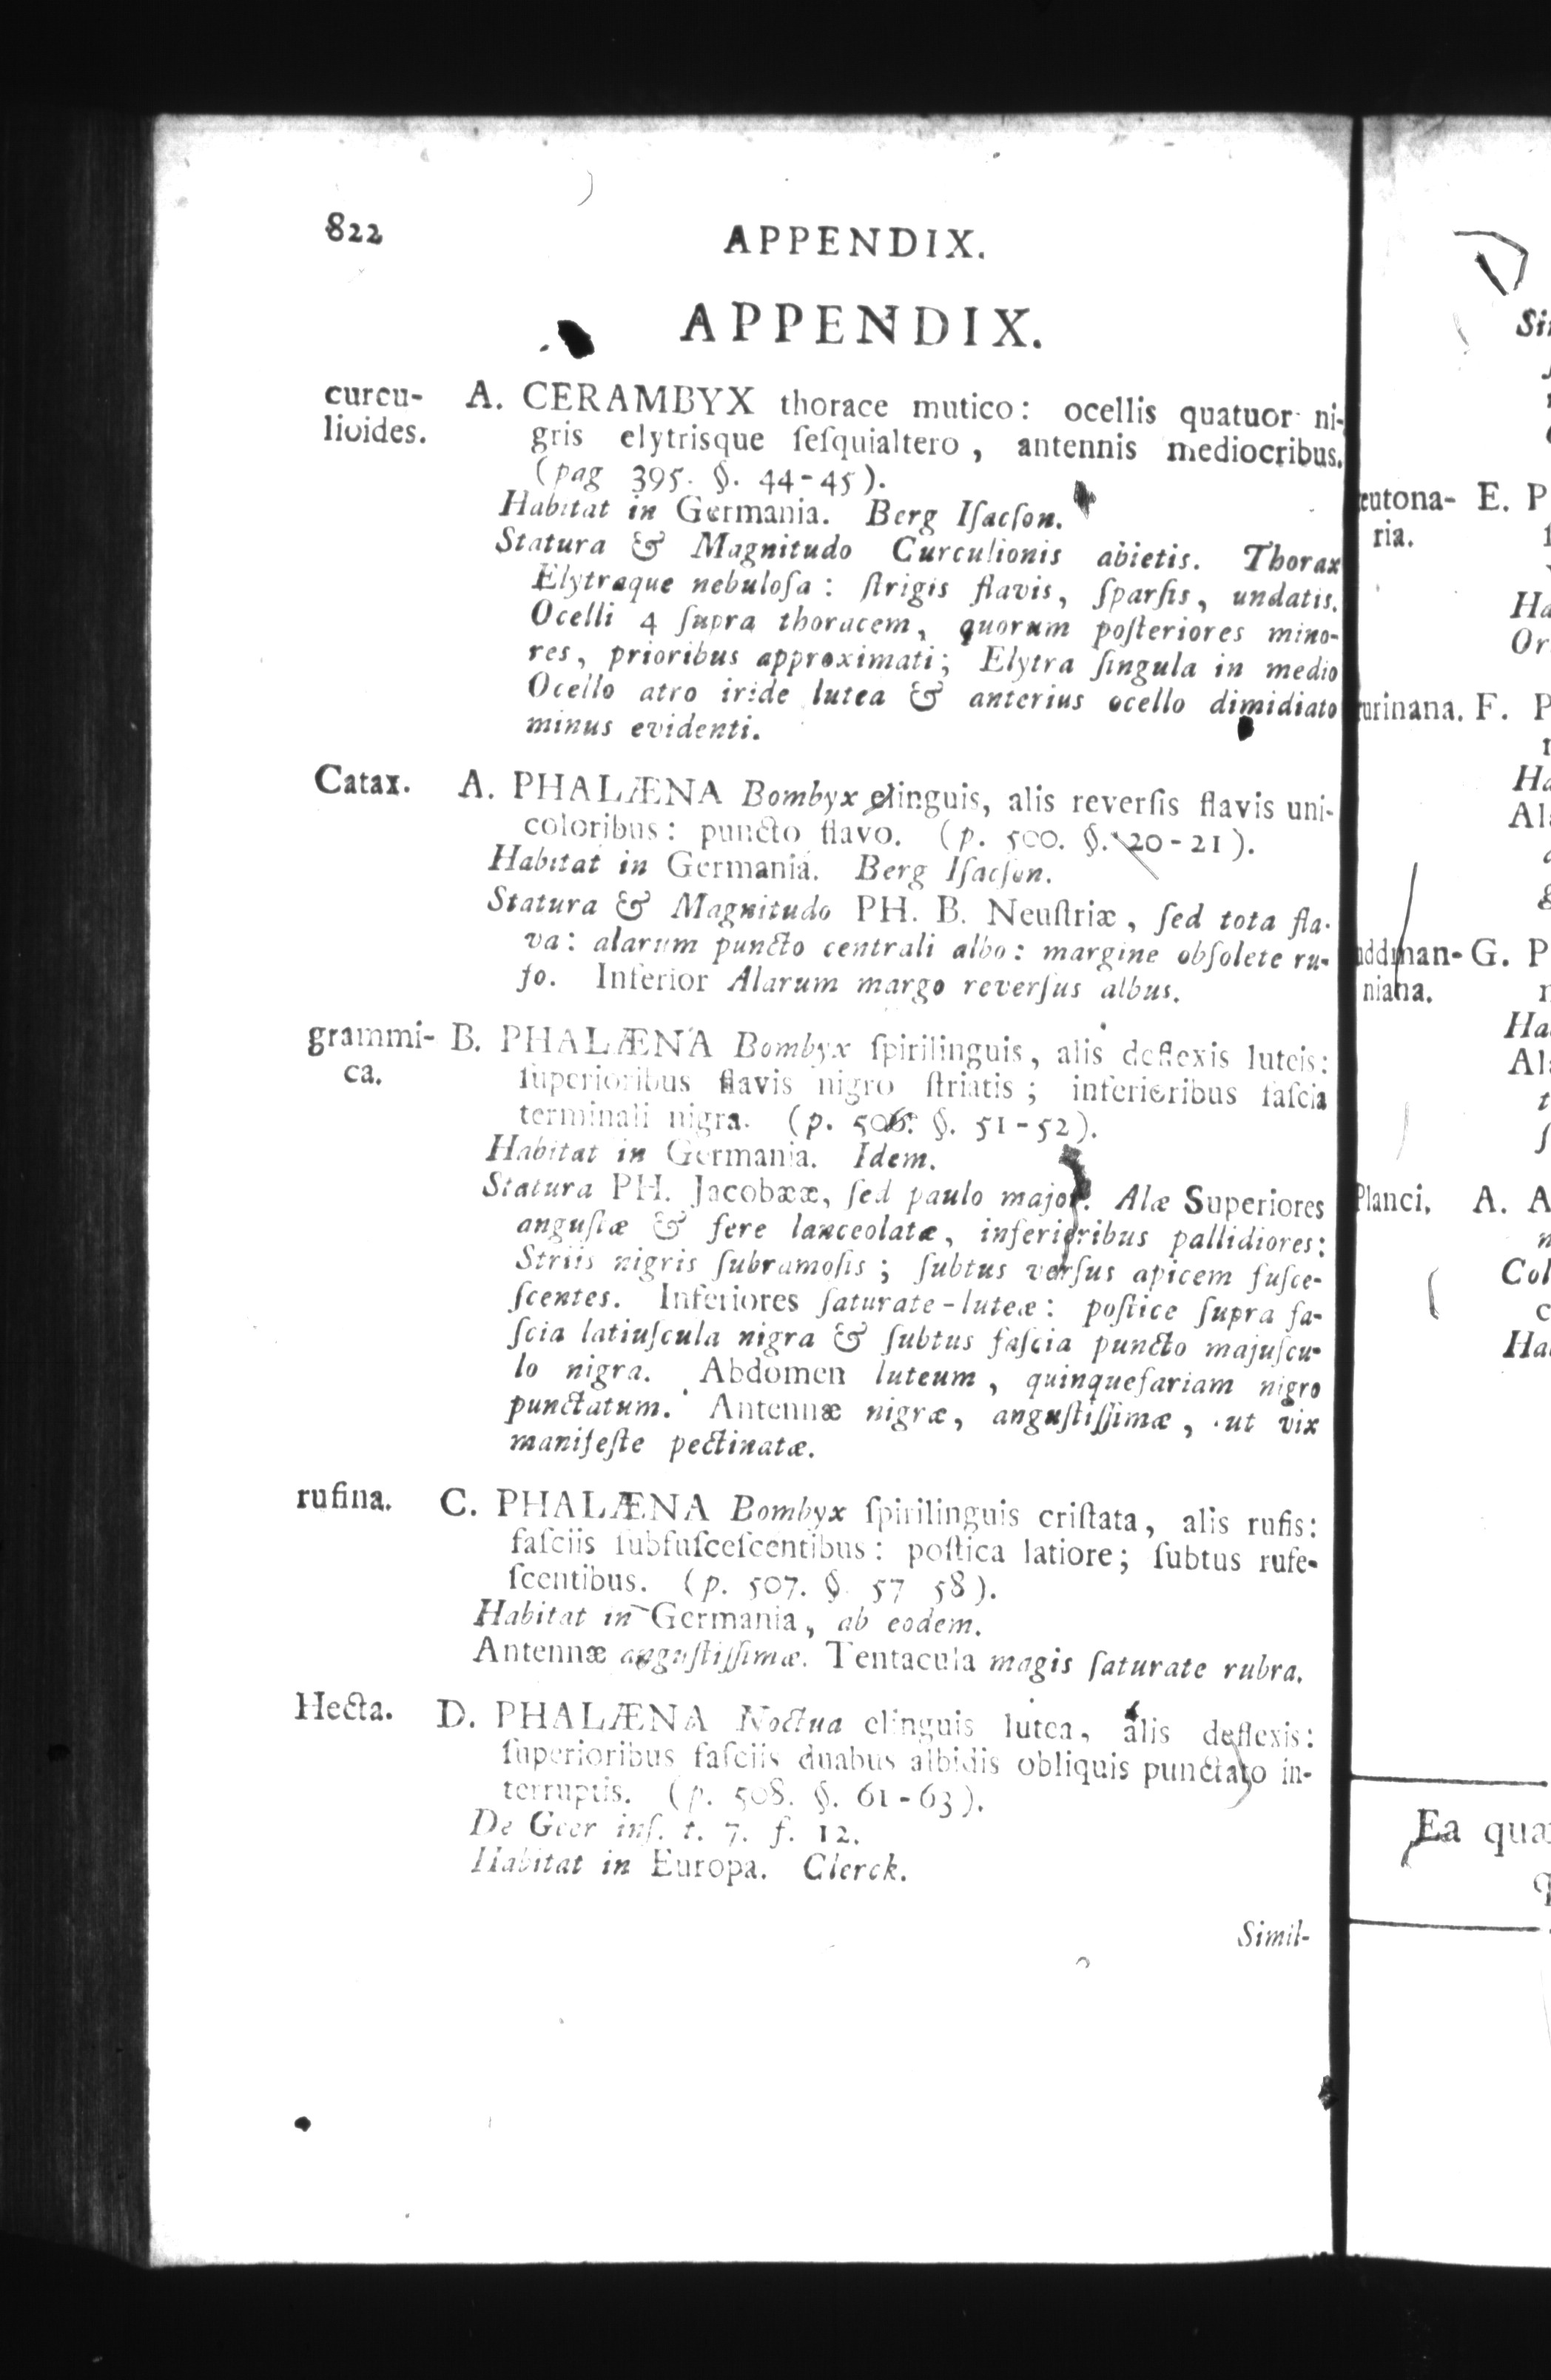 822 APPENDIX.
APPENDIX.
curcu- A. CERAMBYX thorace mutico: ocellis quatuor ni-
lioides. gris elytrisque ſeſquialtero, antennis mediocribus.
(pag 395. §. 44-45).
Habitat in Germania. Berg Iſacſon.
Statura & Magnitudo Curculionis abietis. Thorax
Elytraque nebuloſa: ſtrigis flavis, ſparſis, undatis.
Ocelli 4 ſupra thoracem, quorum poſteriores mino-
res, prioribus approximati; Elytra ſingula in medio
Ocello atro iride lutea & anterius ocello dimidiato
minus evidenti.
Catax. A. PHALÆNA Bombyx elinguis, alis reverſis flavis uni-
coloribus: puncto flavo. (p. 500. §. 20-21).
Habitat in Germania. Berg Iſacſon.
Statura & Magnitudo PH. B. Neuſtriæ, ſed tota fla-
va: alarum puncto centrali albo: margine obſolete ru-
fo. Inferior Alarum margo reverſus albus.
grammi- B. PHALÆNA Bombyx ſpirilinguis, alis deflexis luteis:
ca. ſuperioribus flavis nigro ſtriatis; inferioribus faſcia
terminali nigra. (p. 506. §. 51-52).
Habitat in Germania. Idem.
Statura PH. Jacobææ, ſed paulo major. Alæ Superiores
anguſtæ & fere lanceolatæ, inferioribus pallidiores:
Striis nigris ſubramoſis; ſubtus verſus apicem fuſce-
ſcentes. Inferiores ſaturate-luteæ: poſtice ſupra fa-
ſcia latiuſcula nigra & ſubtus faſcia puncto majuſcu-
lo nigra. Abdomen luteum, quinquefariam nigro
punctatum. Antennæ nigræ, anguſtiſſimæ, ut vix
manifeſte pectinatæ.
rufina. C. PHALÆNA Bombyx ſpirilinguis criſtata, alis rufis:
faſciis ſubfuſceſcentibus: poſtica latiore; ſubtus rufe-
ſcentibus. (p. 507. § 57 58).
Habitat in Germania, ab eodem.
Antennæ anguſtiſſimæ. Tentacula magis ſaturate rubra.
Hecta. D. PHALÆNA Noctua elinguis lutea, alis deflexis:
ſuperioribus faſciis duabus albidis obliquis punctato in-
terruptis. (p. 508. §. 61-63).
De Geer inſ. t. 7. f. 12.
Habitat in Europa. Clerck.
Simil-
eutona- E. P
ria.
Ha
Or
urinana. F. P
Ha
Al
ddman- G. P
niana.
Ha
Al
Planci. A. A
Col
Ha
Ea quæ